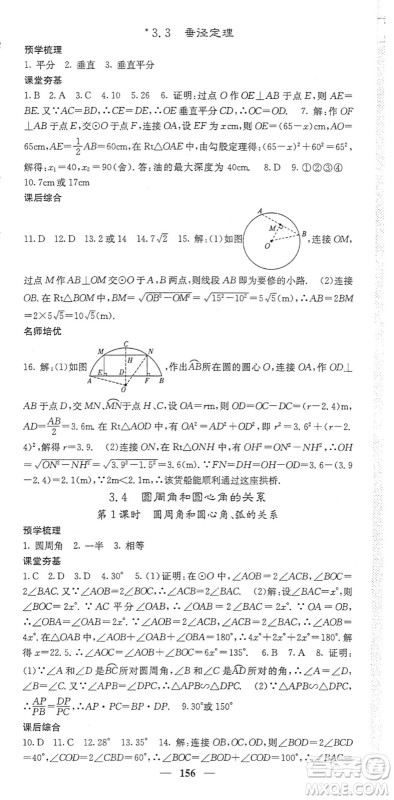 *3.3 垂径定理
预学梳理
1. 平分 2. 垂直 3. 垂直平分
课堂夯基
1. B 2. A 3. C 4. 10 5. 26 6. 证明:过点 O 作 OE⊥AB 于点 E,则 AE=
BE. 又∵AC=BD,∴CE=DE,∴OE 垂直平分 CD,∴OC=OD. 7. 解:作
OF⊥AB 于点 E,交⊙O 于点 F,连接 OA,设 EF 为 x cm,则 OE=(65-x)cm,AO=
65cm,AE=1/2AB=60cm,在 Rt△AEO 中,由勾股定理得:(65-x)²+60²=65²,
解得:x₁=40,x₂=90(舍). 答:油的最大深度为 40cm. 8. D 9. ①②③④
10. 7cm 或 17cm
课后综合
11. D 12. D 13. 2 或 14 14. 7√2 15. 解:(1)如图 ,连接 OM,
过点 M 作 AB⊥OM 交⊙O 于 A、B 两点,则线段 AB 即为要修的小路. (2)连接
OB. 在 Rt△BOM 中,BM=√(OB²-OM²)=√(15²-10²)=5√5(m),∴AB=2BM
=2×5√5=10√5(m).
名师培优
16. 解:(1)如图 ,作出 AB 所在的圆的圆心 O,连接 OA,
作 OC⊥AB 于点 D,交 MN、MN 于点 H、C,设 OA=r m,则 OD=OC-DC=(r-
2.4)m,AD=AB/2=3.6m. 在 Rt△AOD 中,有 OA²=AD²+OD²,即 r²=3.6²+(r-
2.4)²,解得 r=3.9. (2)在 Rt△OHN 中,OH=√(ON²-NH²)=√(3.9²-1.5²)=
3.6(m),∴FN=DH=OH-OD=3.6-(3.9-2.4)=2.1(m). ∵2m<2.1m,∴
此货船能顺利通过这座拱桥.
3.4 圆周角和圆心角的关系
第 1 课时 圆周角和圆心角、弧的关系
预学梳理
1. 圆周角 2. 一半 3. 相等
课堂夯基
1. C 2. D 3. D 4. 30° 5. (1)证明:在⊙O 中,∵∠AOB=2∠ACB,∠BOC=
2∠BAC. 又∵∠ACB=2∠BAC,∴∠AOB=2∠BOC. (2)解:设∠BAC=x°,则
∠AOB=2∠BOC=4x°. ∵AC 平分∠OAB,∴∠OAB=2∠BAC=2x°. ∵OA=
OB,∴∠OBA=∠OAB=2x°. ∵∠AOB+∠OAB+∠OBA=180°,∴4x+2x+2x
=180,解得 x=22.5,∴∠AOC=6x=135°. 6. B 7. A 8. 证明:(1)∵∠A 和
∠D 都是 BC 所对的圆周角,∴∠A=∠D. (2)∵∠B 和∠C 是 AD 所对的角,∴∠B
=∠C. 又∵∠A=∠D,∠APB=∠DPC,∴△APB∽△DPC,∴∠APB=∠DPC,
∴AP/PB=DP/PC,∴AP·PC=DP·PB. 9. 30°或 150°
课后综合
10. D 11. C 12. 28° 13. 35° 14. 解:连接 OB、OC、OD,则∠BOC=2∠BAC
=40°,∠COD=2∠CED=60°,∴∠BOD=∠BOC+∠COD=40°+60°=100°,∴
156